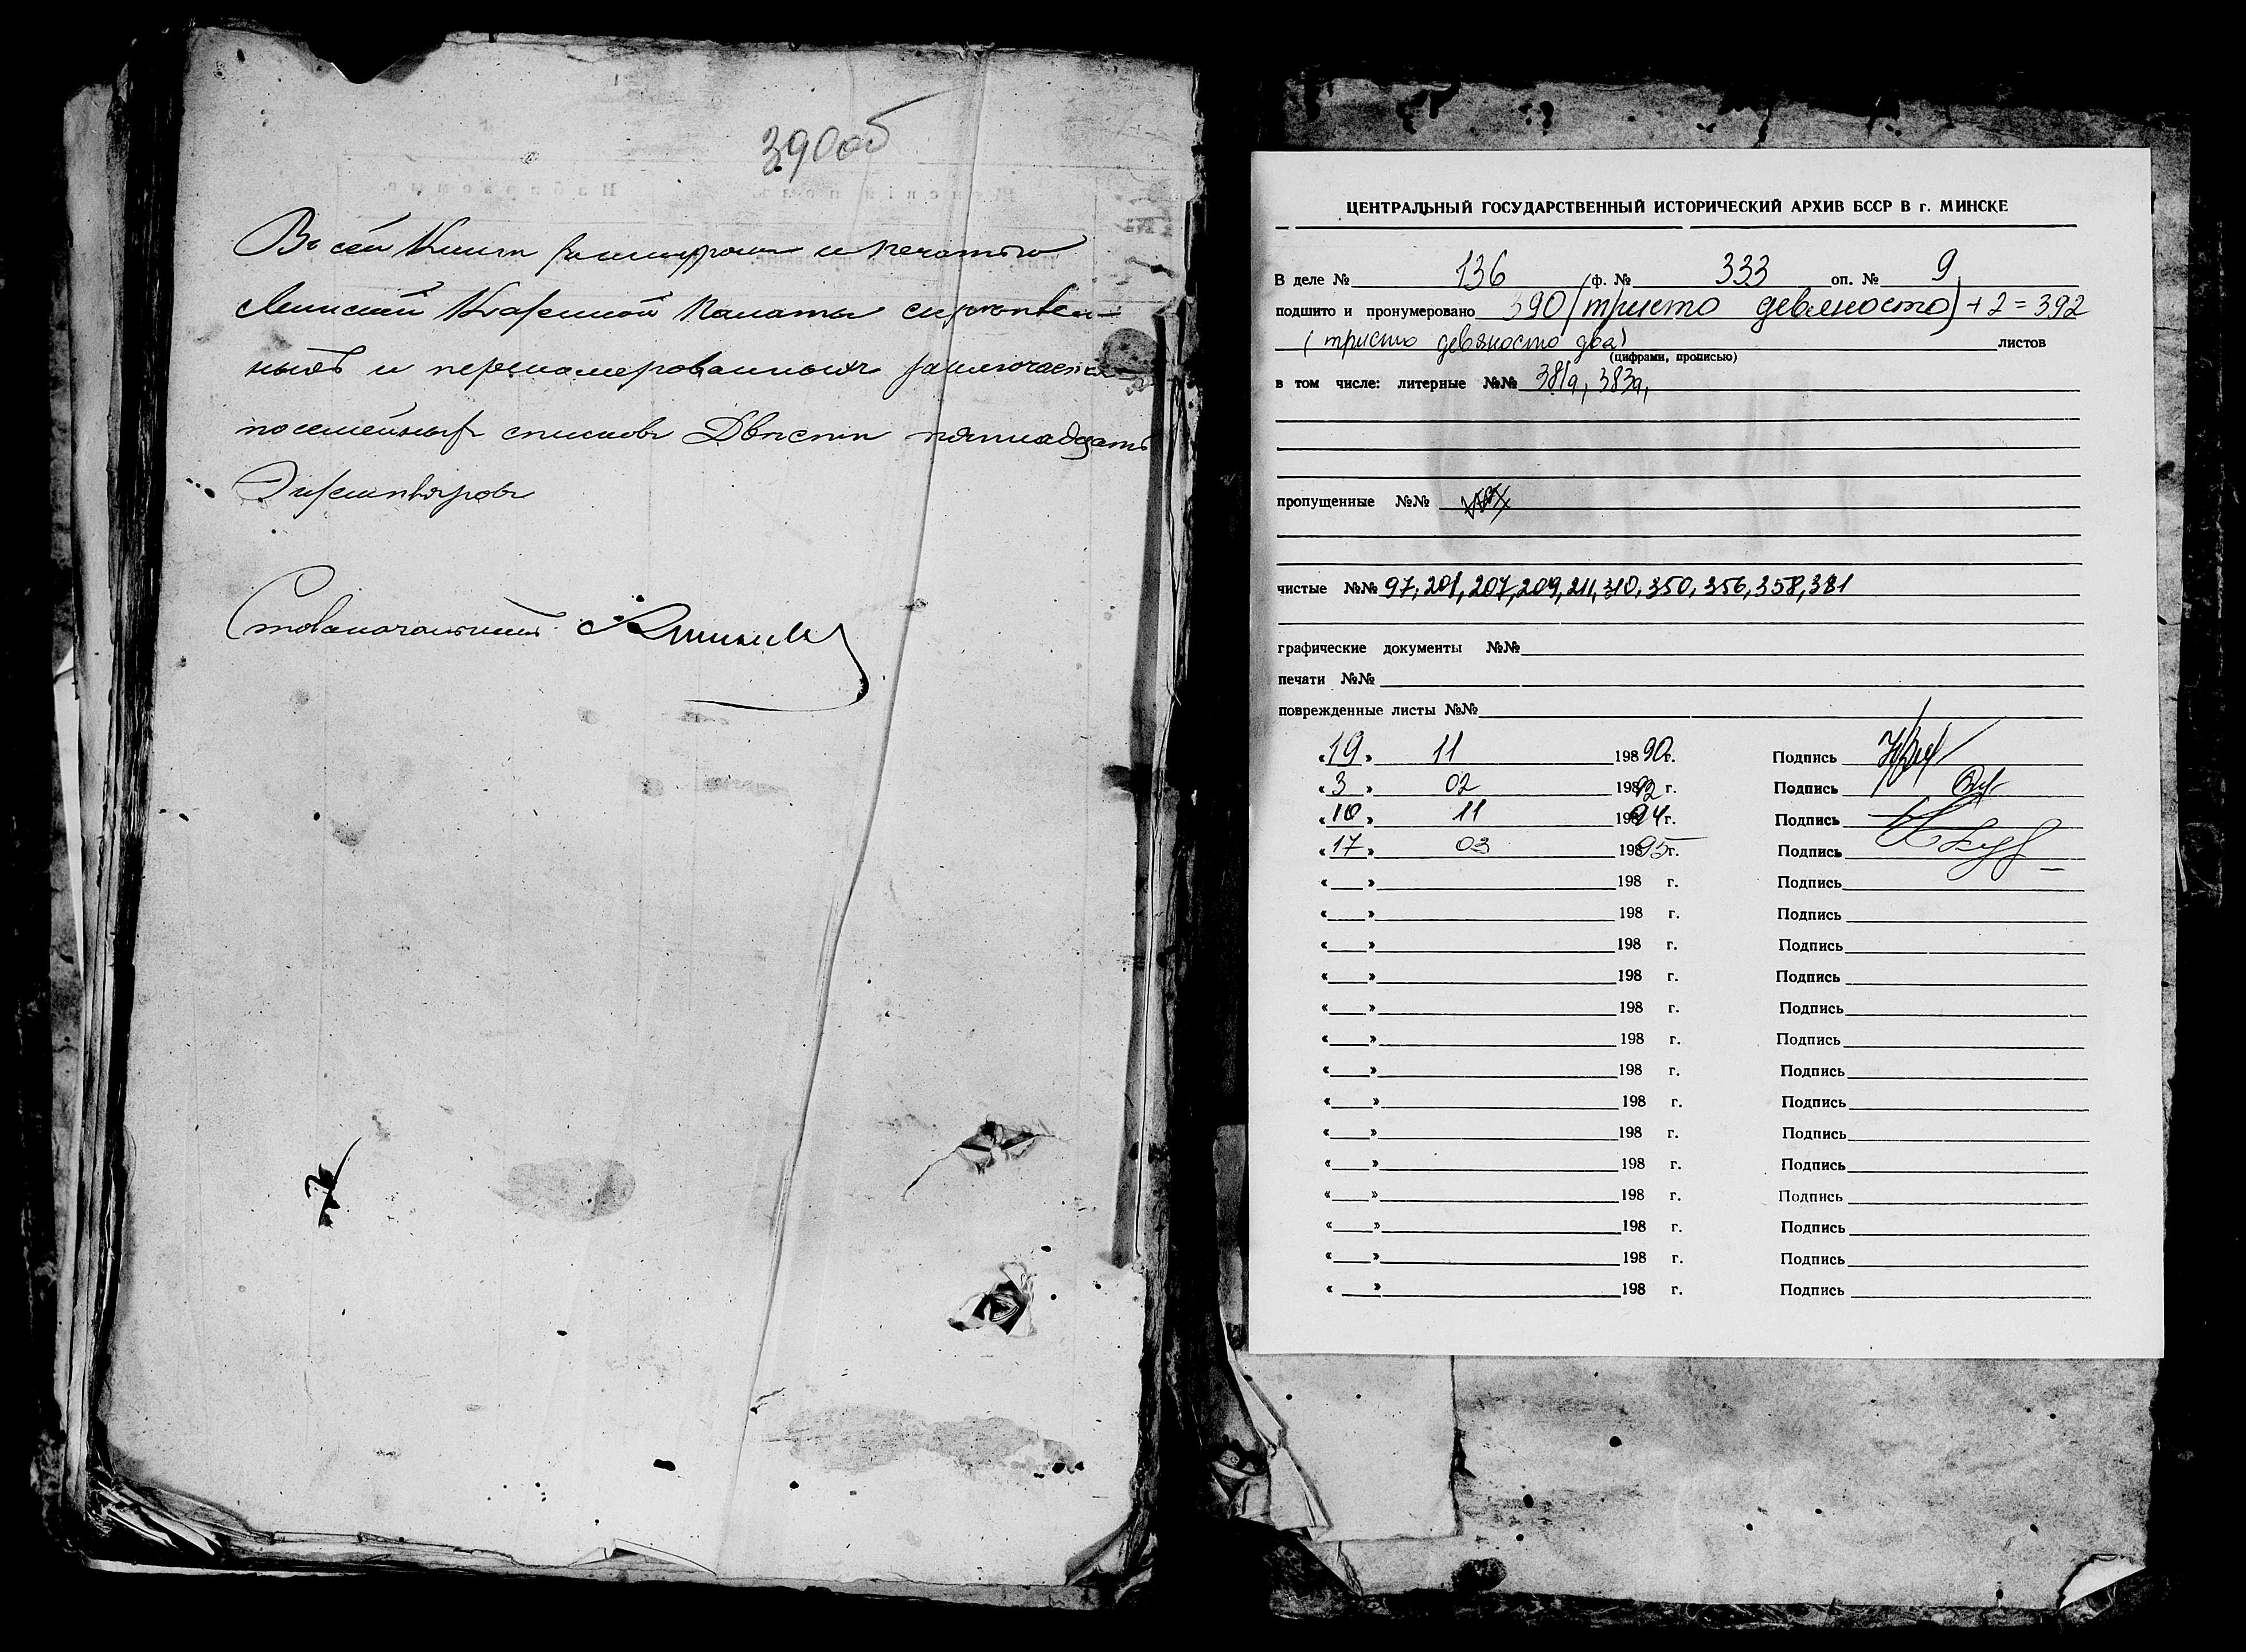 390 об
Въ сей Книгѣ за шнуромъ и печатью
Минской Казенной Палаты скрѣплен-
ныхъ и перенумерованныхъ заключается
посемейныхъ списковъ Двѣсти пятнадцать
Экземпляровъ
Столоначальникъ
ЦЕНТРАЛЬНЫЙ ГОСУДАРСТВЕННЫЙ ИСТОРИЧЕСКИЙ АРХИВ БССР В г. МИНСКЕ
В деле № 136 (ф. № 333 оп. № 9)
подшито и пронумеровано 390 (триста девяносто) + 2 = 392
(триста девяносто два) листов
(цифрами, прописью)
в том числе: литерные №№ 381а, 383а,
пропущенные №№
чистые №№ 97, 201, 207, 209, 211, 310, 350, 356, 358, 381
графические документы №№
печати №№
поврежденные листы №№
«19» 11 198 90г. Подпись
«3» 02 198 92 г. Подпись
«10» 11 198 94 г. Подпись
«17» 03 198 95 г. Подпись
« » 198 г. Подпись
« » 198 г. Подпись
« » 198 г. Подпись
« » 198 г. Подпись
« » 198 г. Подпись
« » 198 г. Подпись
« » 198 г. Подпись
« » 198 г. Подпись
« » 198 г. Подпись
« » 198 г. Подпись
« » 198 г. Подпись
« » 198 г. Подпись
« » 198 г. Подпись
« » 198 г. Подпись